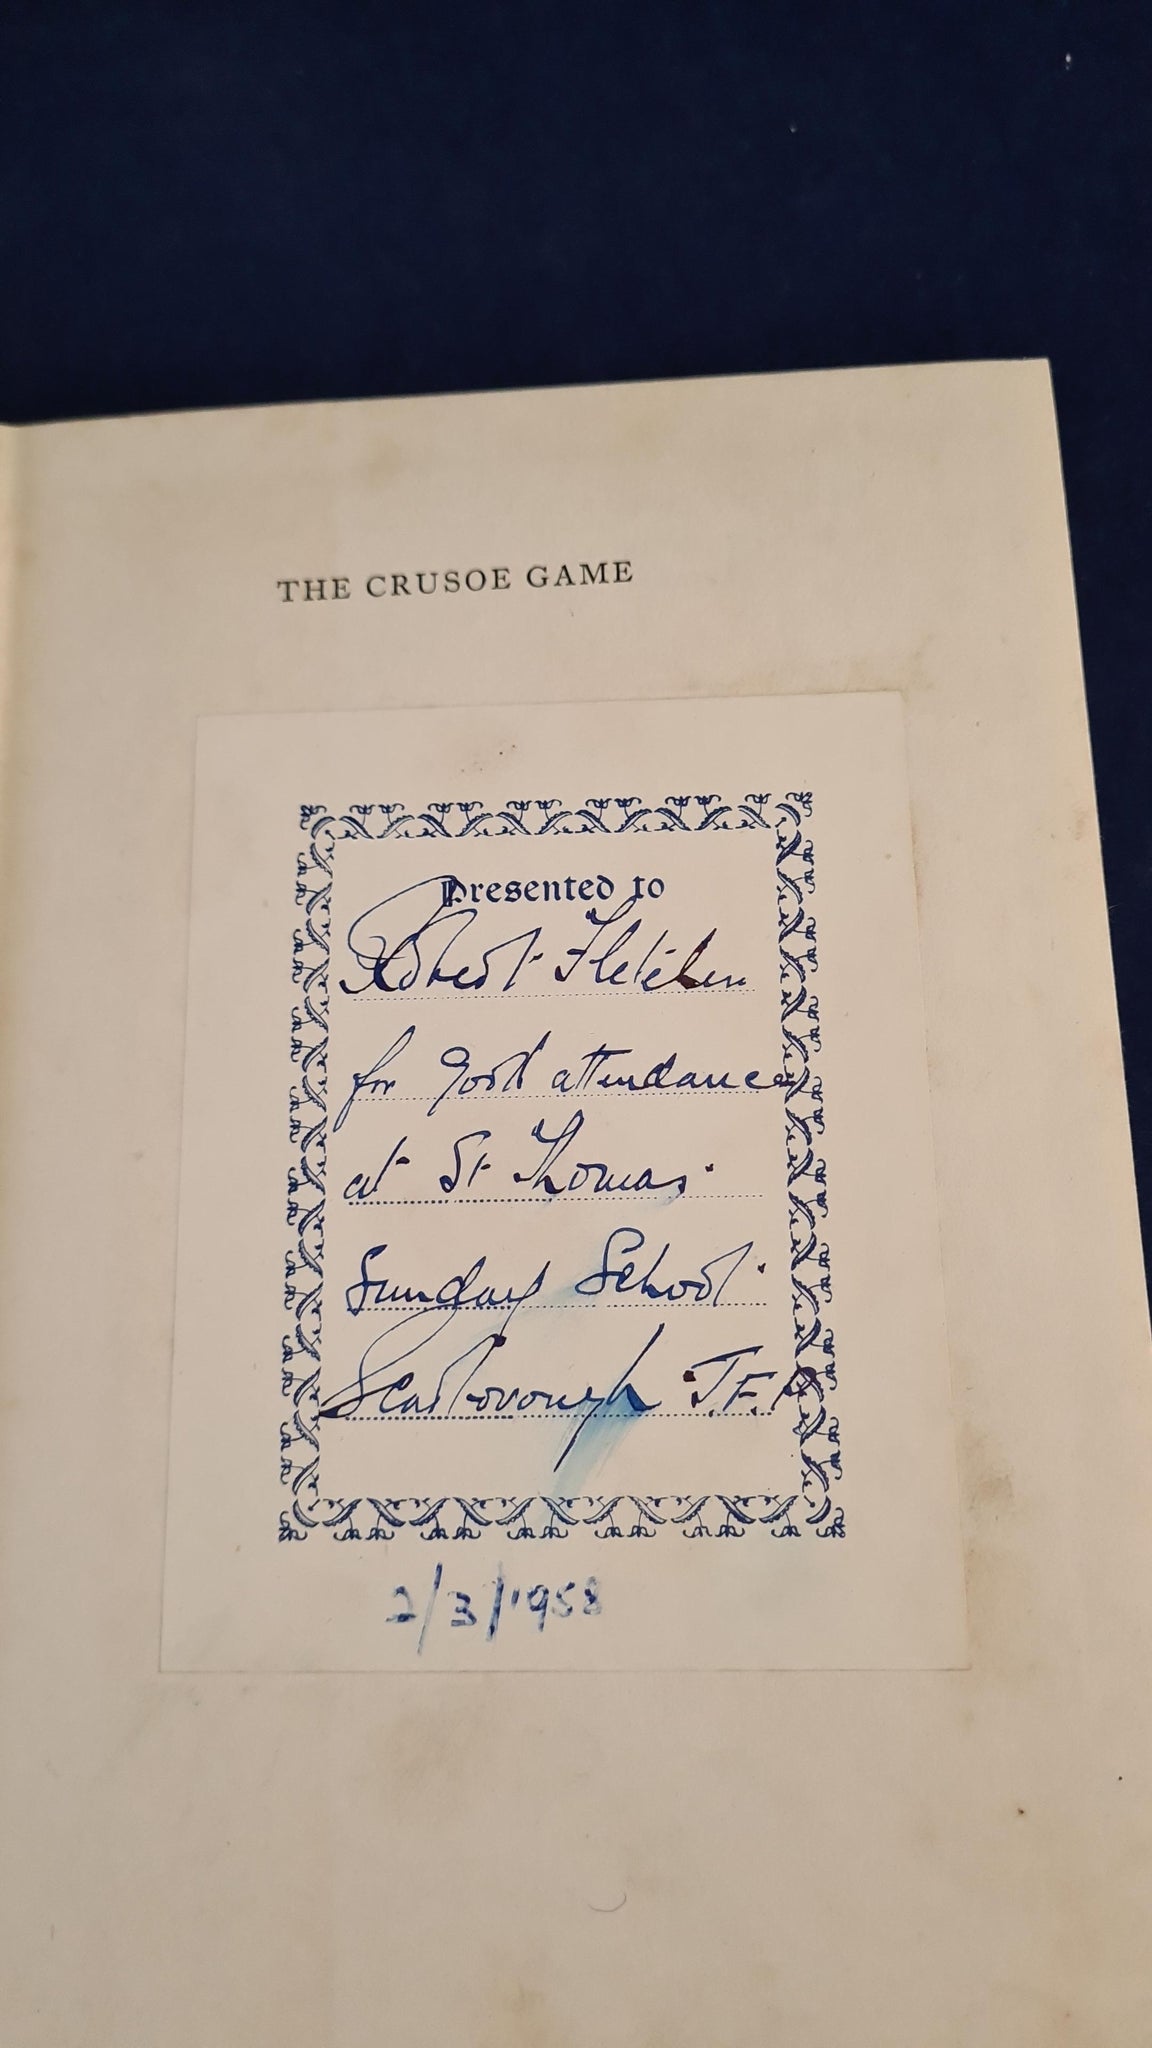 THE CRUSOE GAME
Presented to
Robert Fletcher
for good attendance
at St Thomas.
Sunday School.
Scarborough J.F.P
2/3/1958